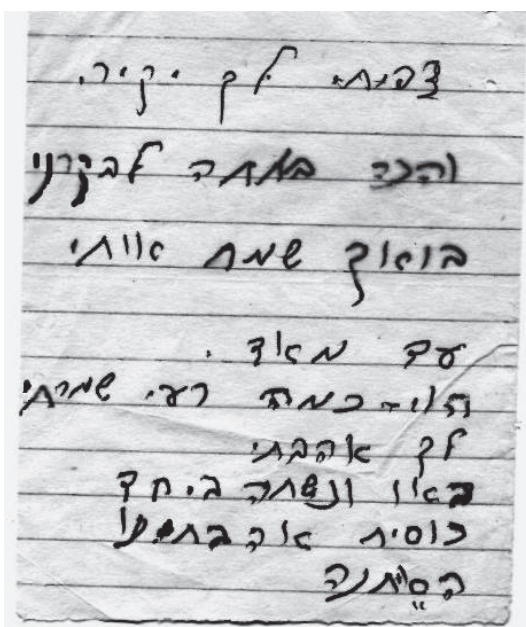 צפיתי לך יקירי.
באתה לבקרני
בואך שמח אותי
עד מאד .
כמה רעי שמרתי
לך אהבתי
ונשתה ביחד
כוסית אהבתינו